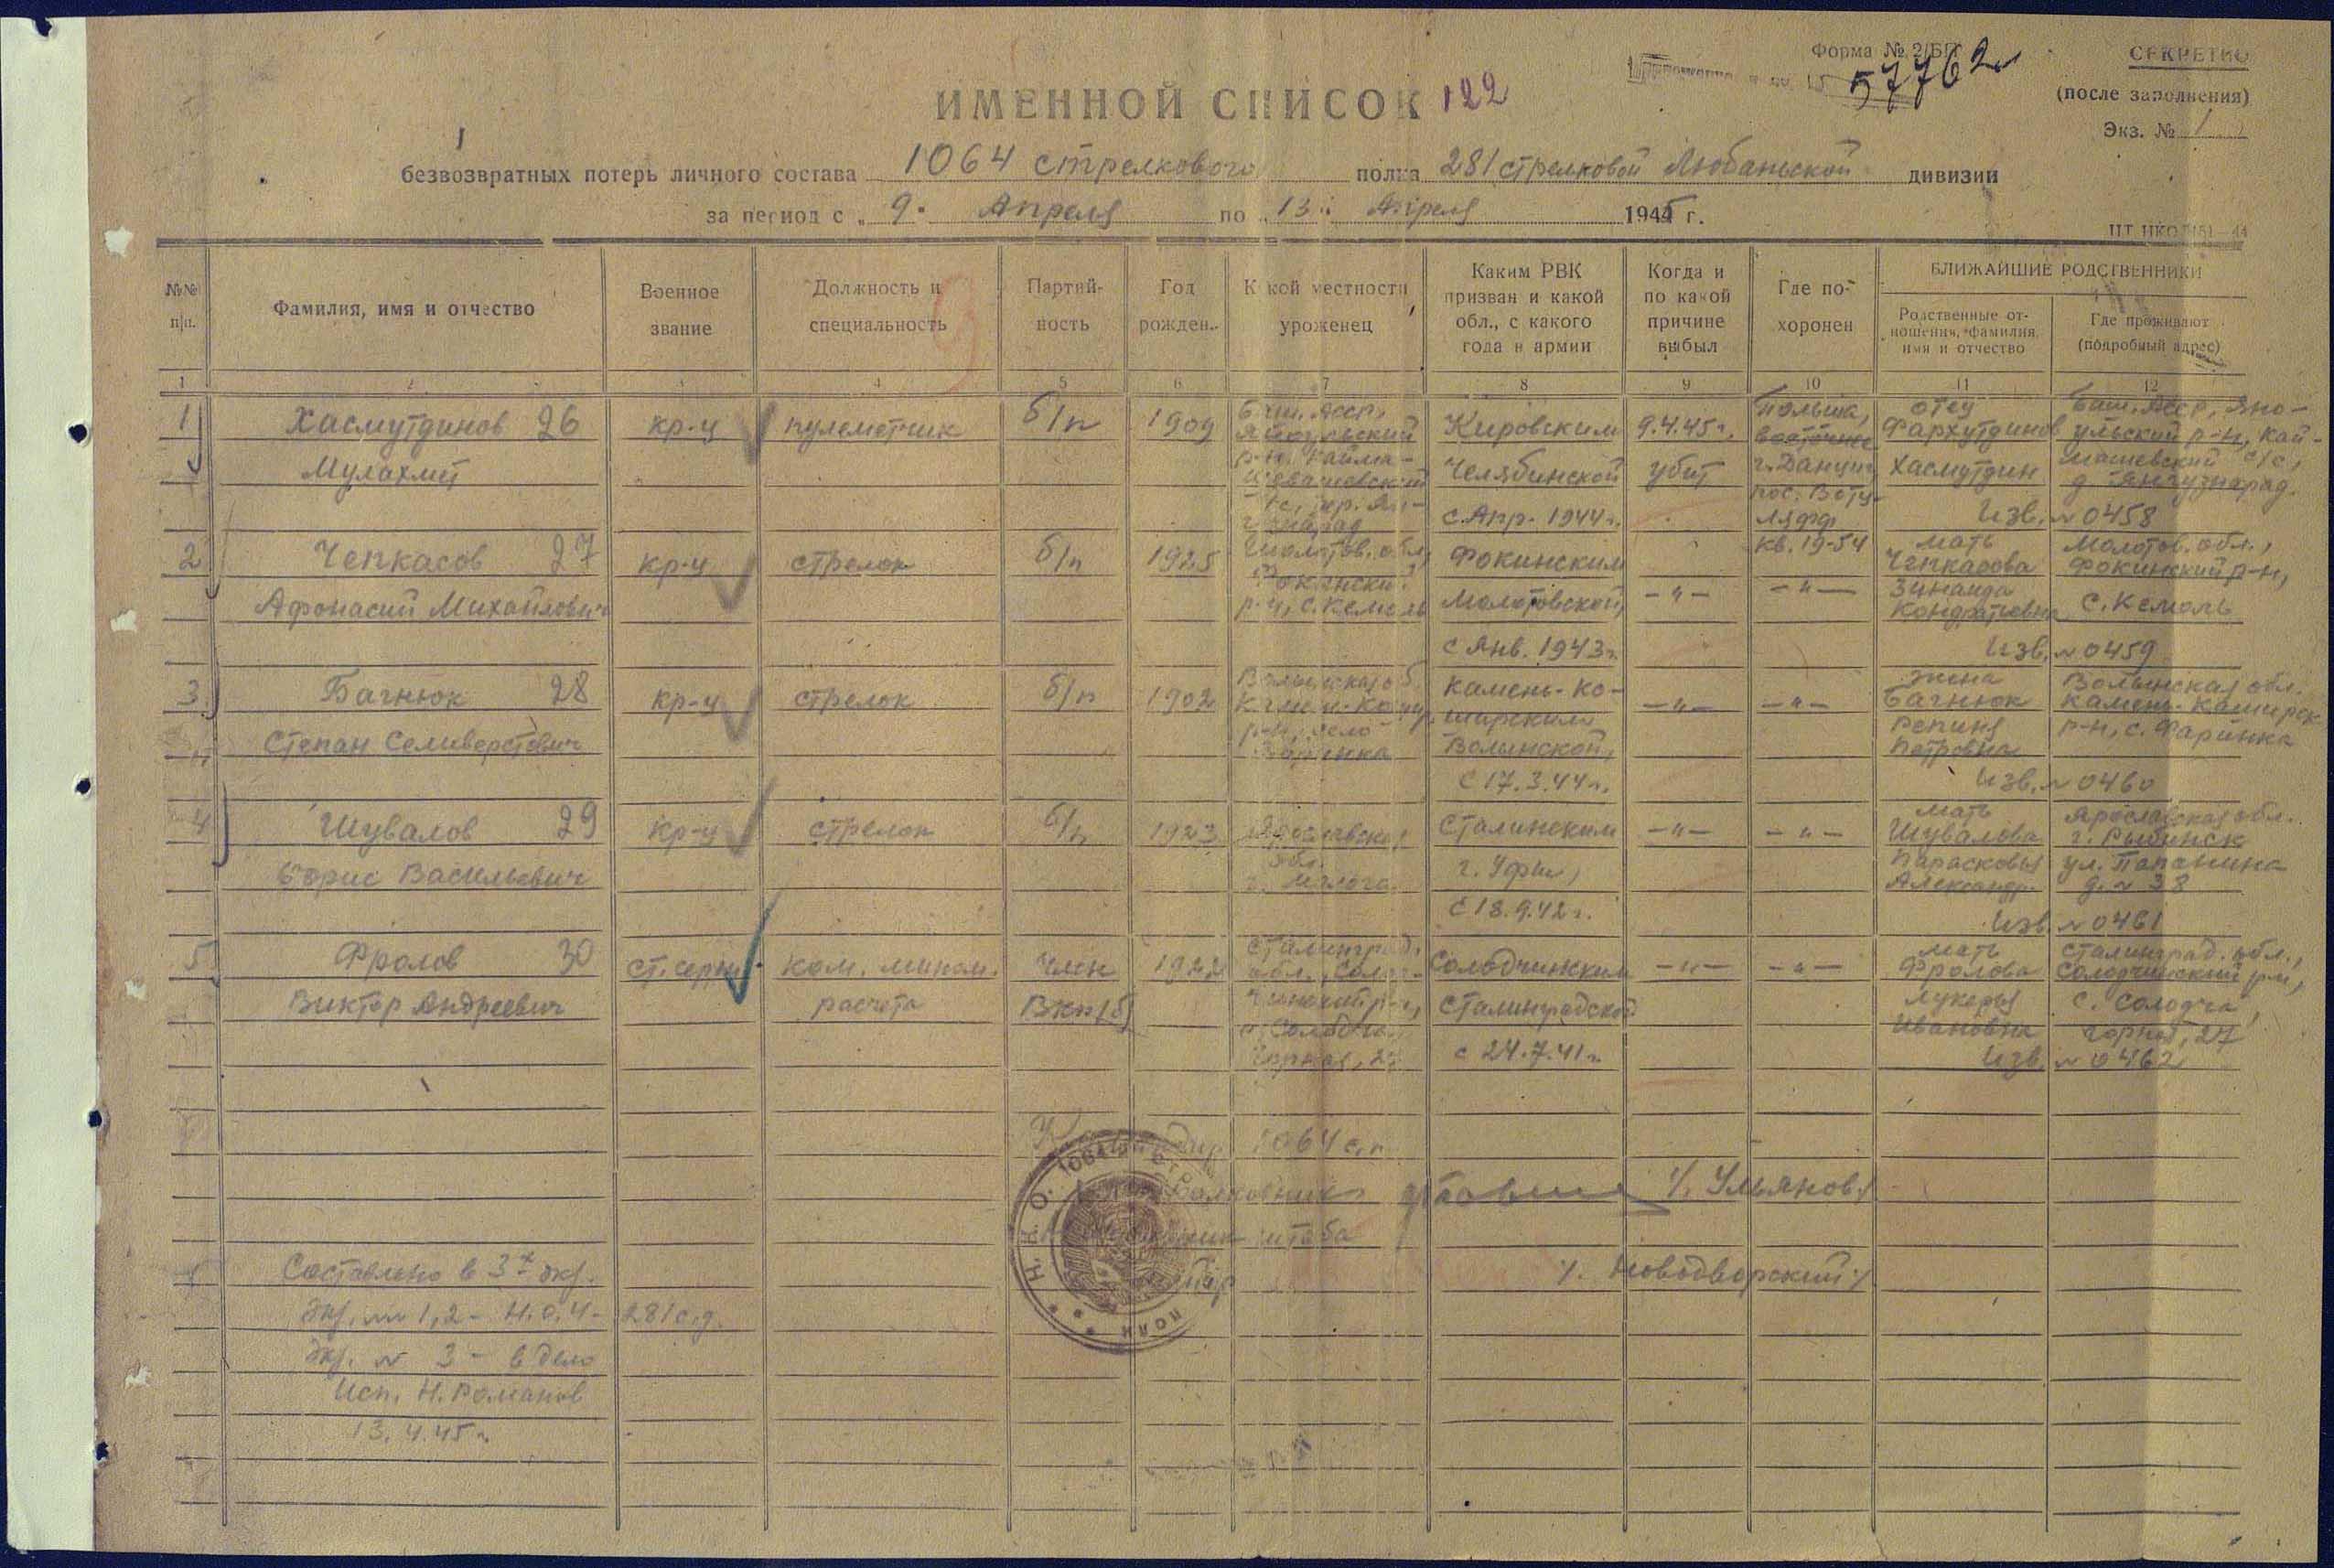 Форма № 2/БП
57762
СЕКРЕТНО
(после заполнения)
Экз. № 1
ИМЕННОЙ СПИСОК 122
безвозвратных потерь личного состава 1064 стрелкового полка 281 стрелковой Любаньской дивизии
за период с „ 9 " Апреля по „ 13 " Апреля 1945 г.
№№ п/п.
Фамилия, имя и отчество
Военное звание
Должность и специальность
Партийность
Год рожден.
Какой местности уроженец
Каким РВК призван и какой обл., с какого года в армии
Когда и по какой причине выбыл
Где похоронен
БЛИЖАЙШИЕ РОДСТВЕННИКИ
Родственные отношения, фамилия, имя и отчество
Где проживают (подробный адрес)
1 2 3 4 5 6 7 8 9 10 11 12
1 Хасмутдинов 26 кр-ц пулеметчик б/п 1909
Мулахмет
Баш. Асср,
Кировским
Челябинской
с Апр. 1944 г.
9.4.45 г.
убит
Польша,
восточнее
г. Данциг
кв. 19-54
отец
Фархутдинов
Хасмутдин
Баш. Асср, Яно-
ульский р-н, Кай-
машевский с/с,
Изв. № 0458
2 Чепкасов 27 кр-ц стрелок б/п 1925
Афонасий Михайлович
Молотов. обл,
Фокинский
р-н, с. Кемоль
Фокинским
Молотовской,
с Янв. 1943 г.
—"— —"—
мать
Чепкасова
Зинаида
Кондратьевна
Молотов. обл.,
Фокинский р-н,
с. Кемоль
Изв. № 0459
3 Багнюк 28 кр-ц стрелок б/п 1902
Степан Селиверстович
р-н, село
Камень-Ко-
ширским
Волынской,
с 17.3.44 г.
—"— —"—
жена
Багнюк
Репина
Петровна
Волынская обл.
Камень-Каширск.
р-н, с. Фаринка
Изв. № 0460
4 Шувалов 29 кр-ц стрелок б/п 1923
Борис Васильевич
Ярославская
обл.
г. Молога
Сталинским
г. Уфы,
с 18.9.42 г.
—"— —"—
мать
Шувалова
Парасковья
Александр.
Ярославская обл.
г. Рыбинск
ул. Папанина
д. № 38
Изв. № 0461
5 Фролов 30 ст. серж. ком. мином. член 1922
Виктор Андреевич расчета ВКП/б/
Сталинград.
обл., Солод-
чинский р-н,
с. Солодча,
Горная, 27
Солодчинским
Сталинградской
с 24.7.41 г.
—"— —"—
мать
Фролова
Лукерья
Ивановна
Сталинград. обл.,
Солодчинский р-н,
с. Солодча,
Горная, 27
Изв. № 0462
Командир 1064 с.п.
Полковник /. Ульянов/
Начальник штаба
/. Новодворский/
Составлено в 3х экз.
Экз. №№ 1, 2 - Н.О.4 - 281 с.д.
Экз. № 3 - в дело
Исп. Н. Романов
13.4.45 г.